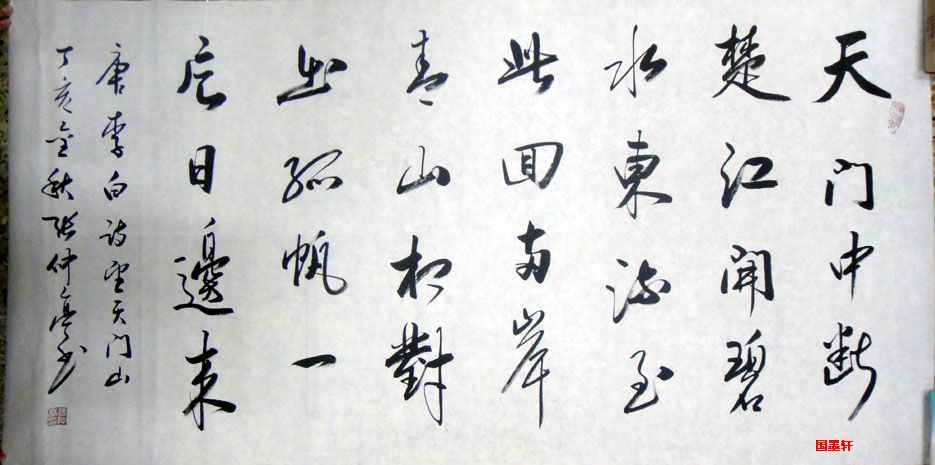 天门中断
楚江開碧
水東流至
此回两岸
青山相對
出孤帆一
片日邊来
唐李白诗望天门山
丁亥金秋张仲亭书
国墨轩